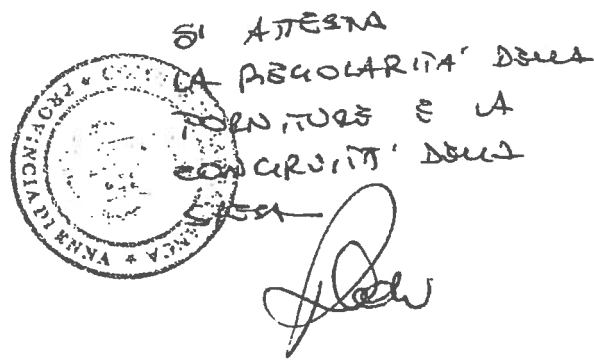 SI ATTESTA
LA REGOLARITA' DELLA
FORNITURE E LA
CONGRUITA' DELLA
SPESA
PROVINCIA DI ENNA